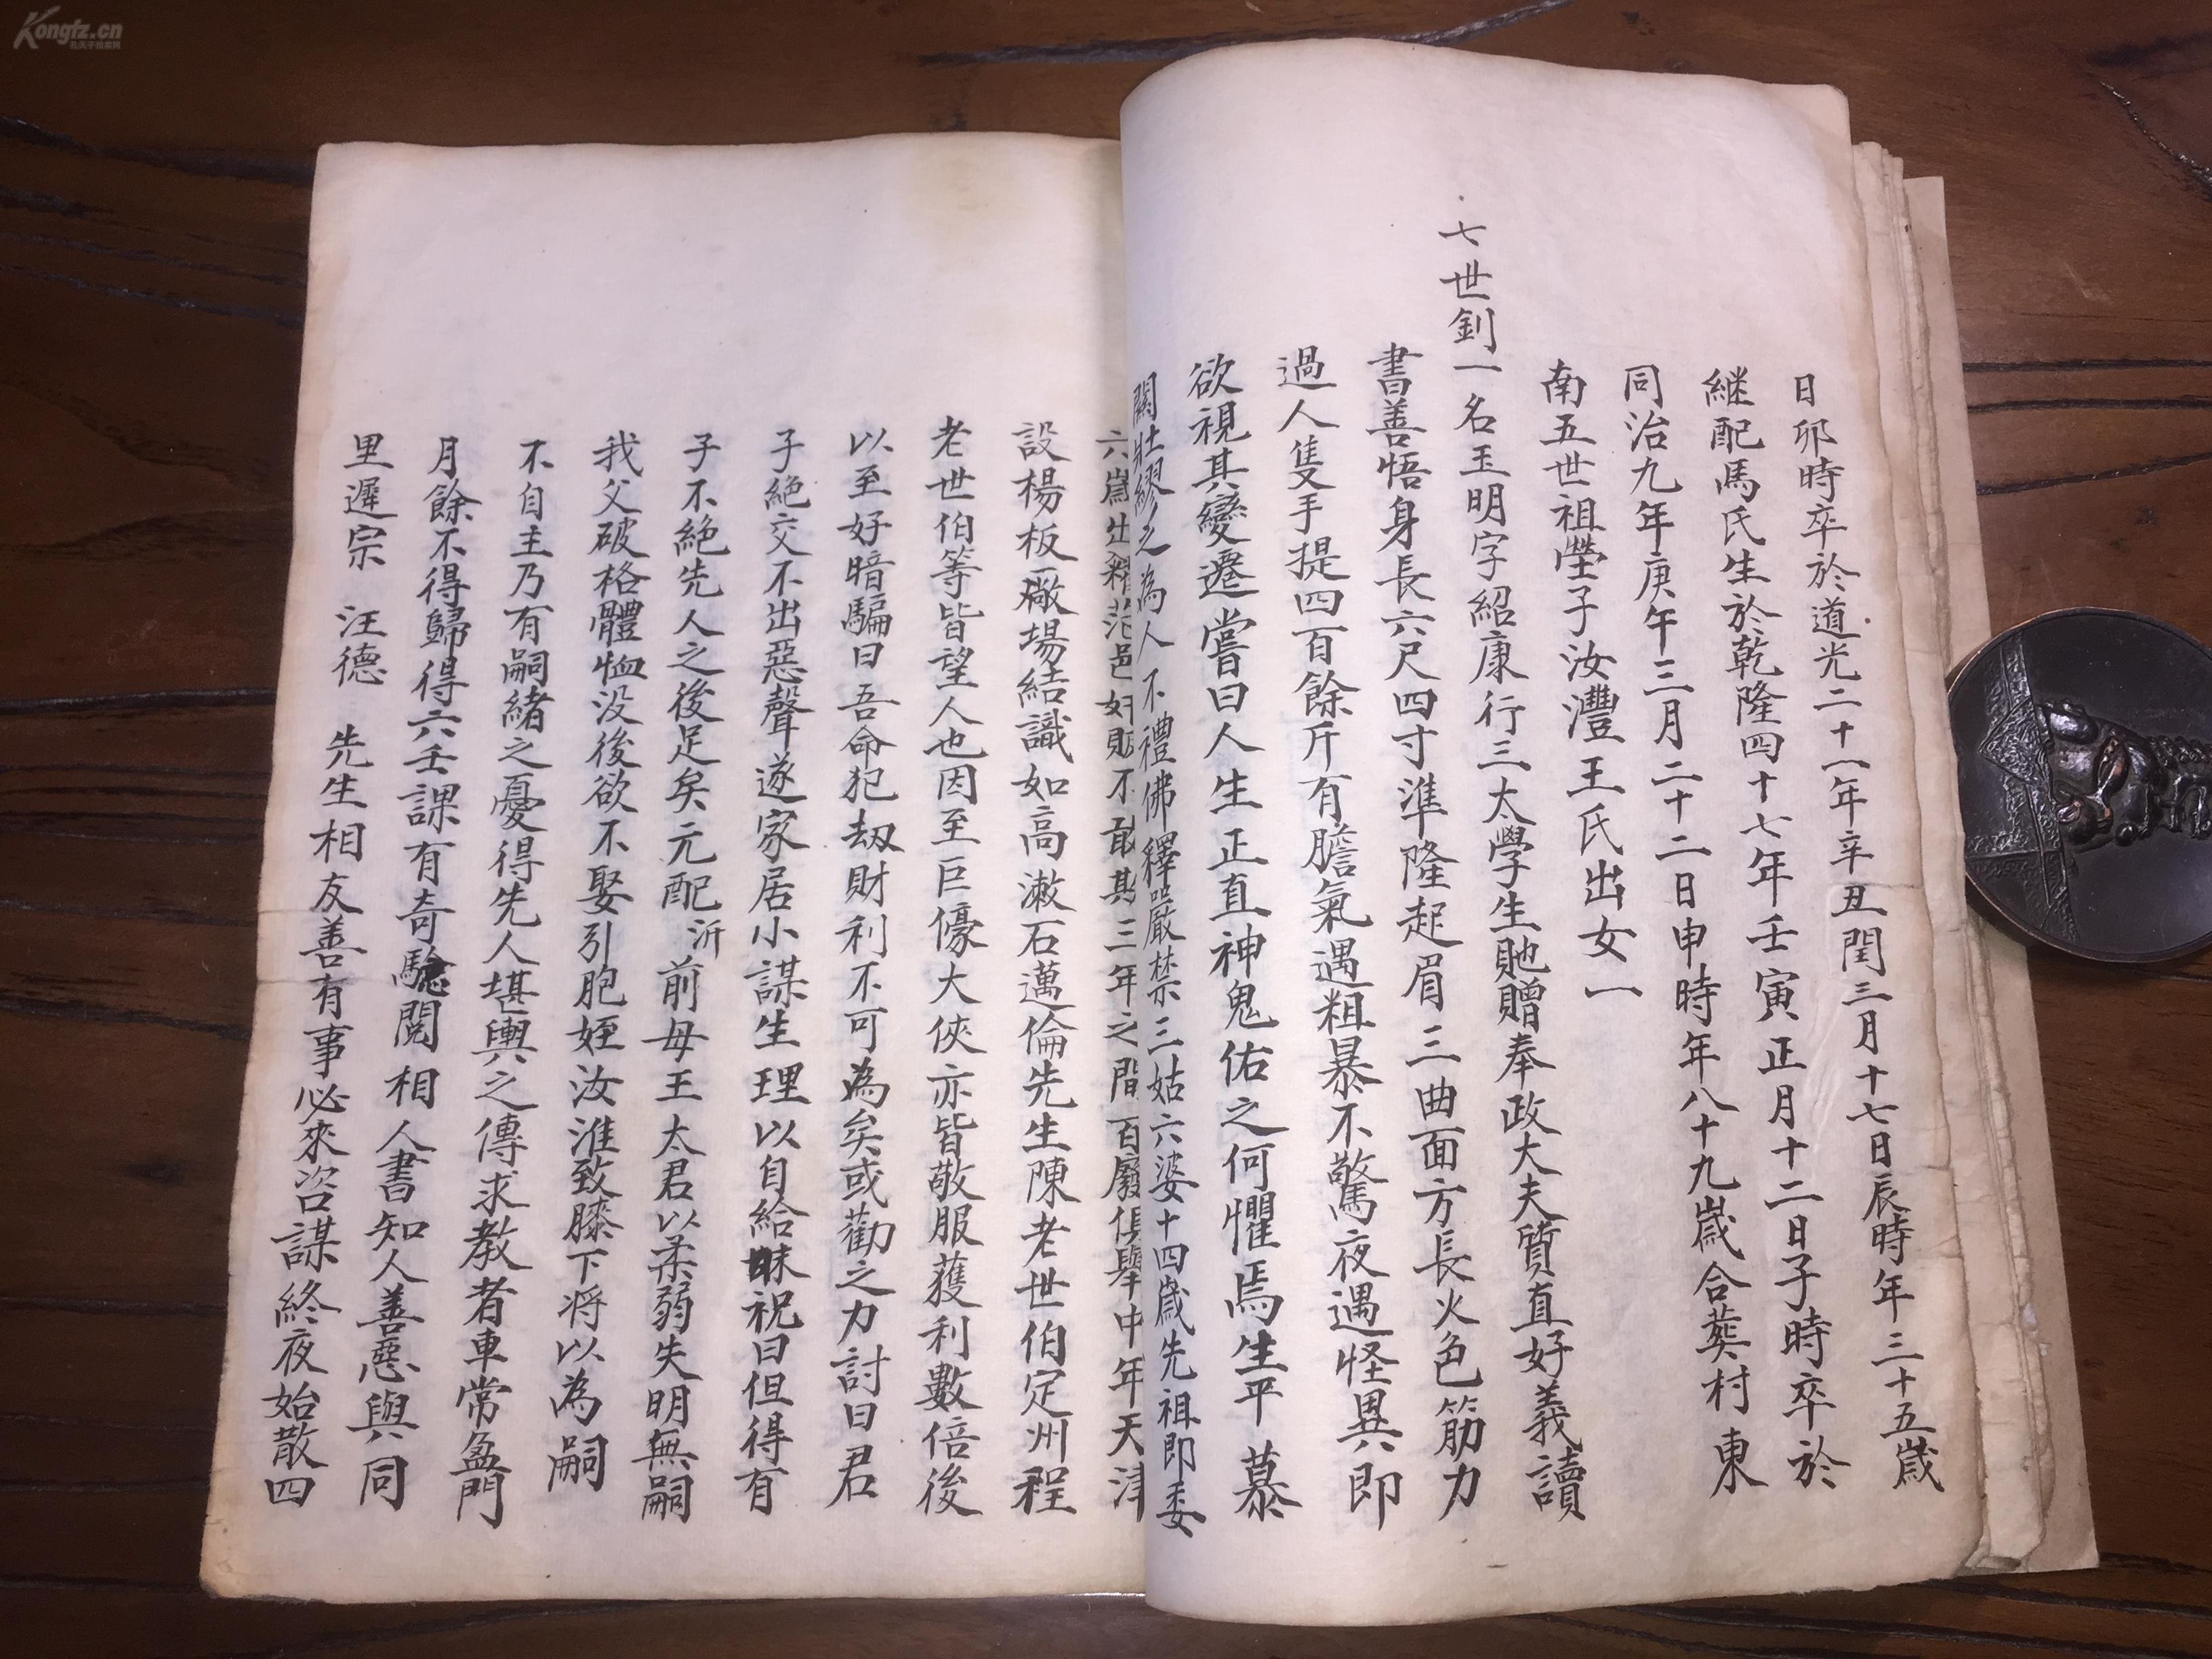 日卯時卒於道光二十一年辛丑閏三月十七日辰時年三十五歲
継配馬氏生於乾隆四十七年壬寅正月十二日子時卒於
同治九年庚午三月二十二日申時年八十九歲合葬村東
南五世祖塋子汝灃王氏出女一
七世釗一名玉明字紹康行三太學生貤贈奉政大夫質直好義讀
書善悟身長六尺四寸準隆起眉三曲面方長火色筋力
過人隻手提四百餘斤有膽氣遇粗暴不驚夜遇怪異即
欲視其變遷嘗曰人生正直神鬼佑之何懼焉生平慕
關壯繆之為人不禮佛釋嚴禁三姑六婆十四歲先祖即委
六 出 邑 不敢 三年之間百廢俱舉中年天津
設楊板廠場結識如高漱石邁倫先生陳老世伯定州程
老世伯等皆望人也因至巨儫大俠亦皆敬服蒦利數倍後
以至好暗騙曰吾命犯劫財利不可為矣或勸之力討曰君
子絶交不出惡聲遂家居小謀生理以自給昧祝曰但得有
子不絶先人之後足矣元配沂前母王太君以柔弱失明無嗣
我父破格體恤没後欲不娶引胞姪汝淮致膝下将以為嗣
不自主乃有嗣緒之憂得先人堪輿之傳求教者車常盈門
月餘不得歸得六壬課有奇驗閱相人書知人善惡與同
里遲宗 汪德 先生相友善有事必來咨謀終夜始散四
Kongfz.cn